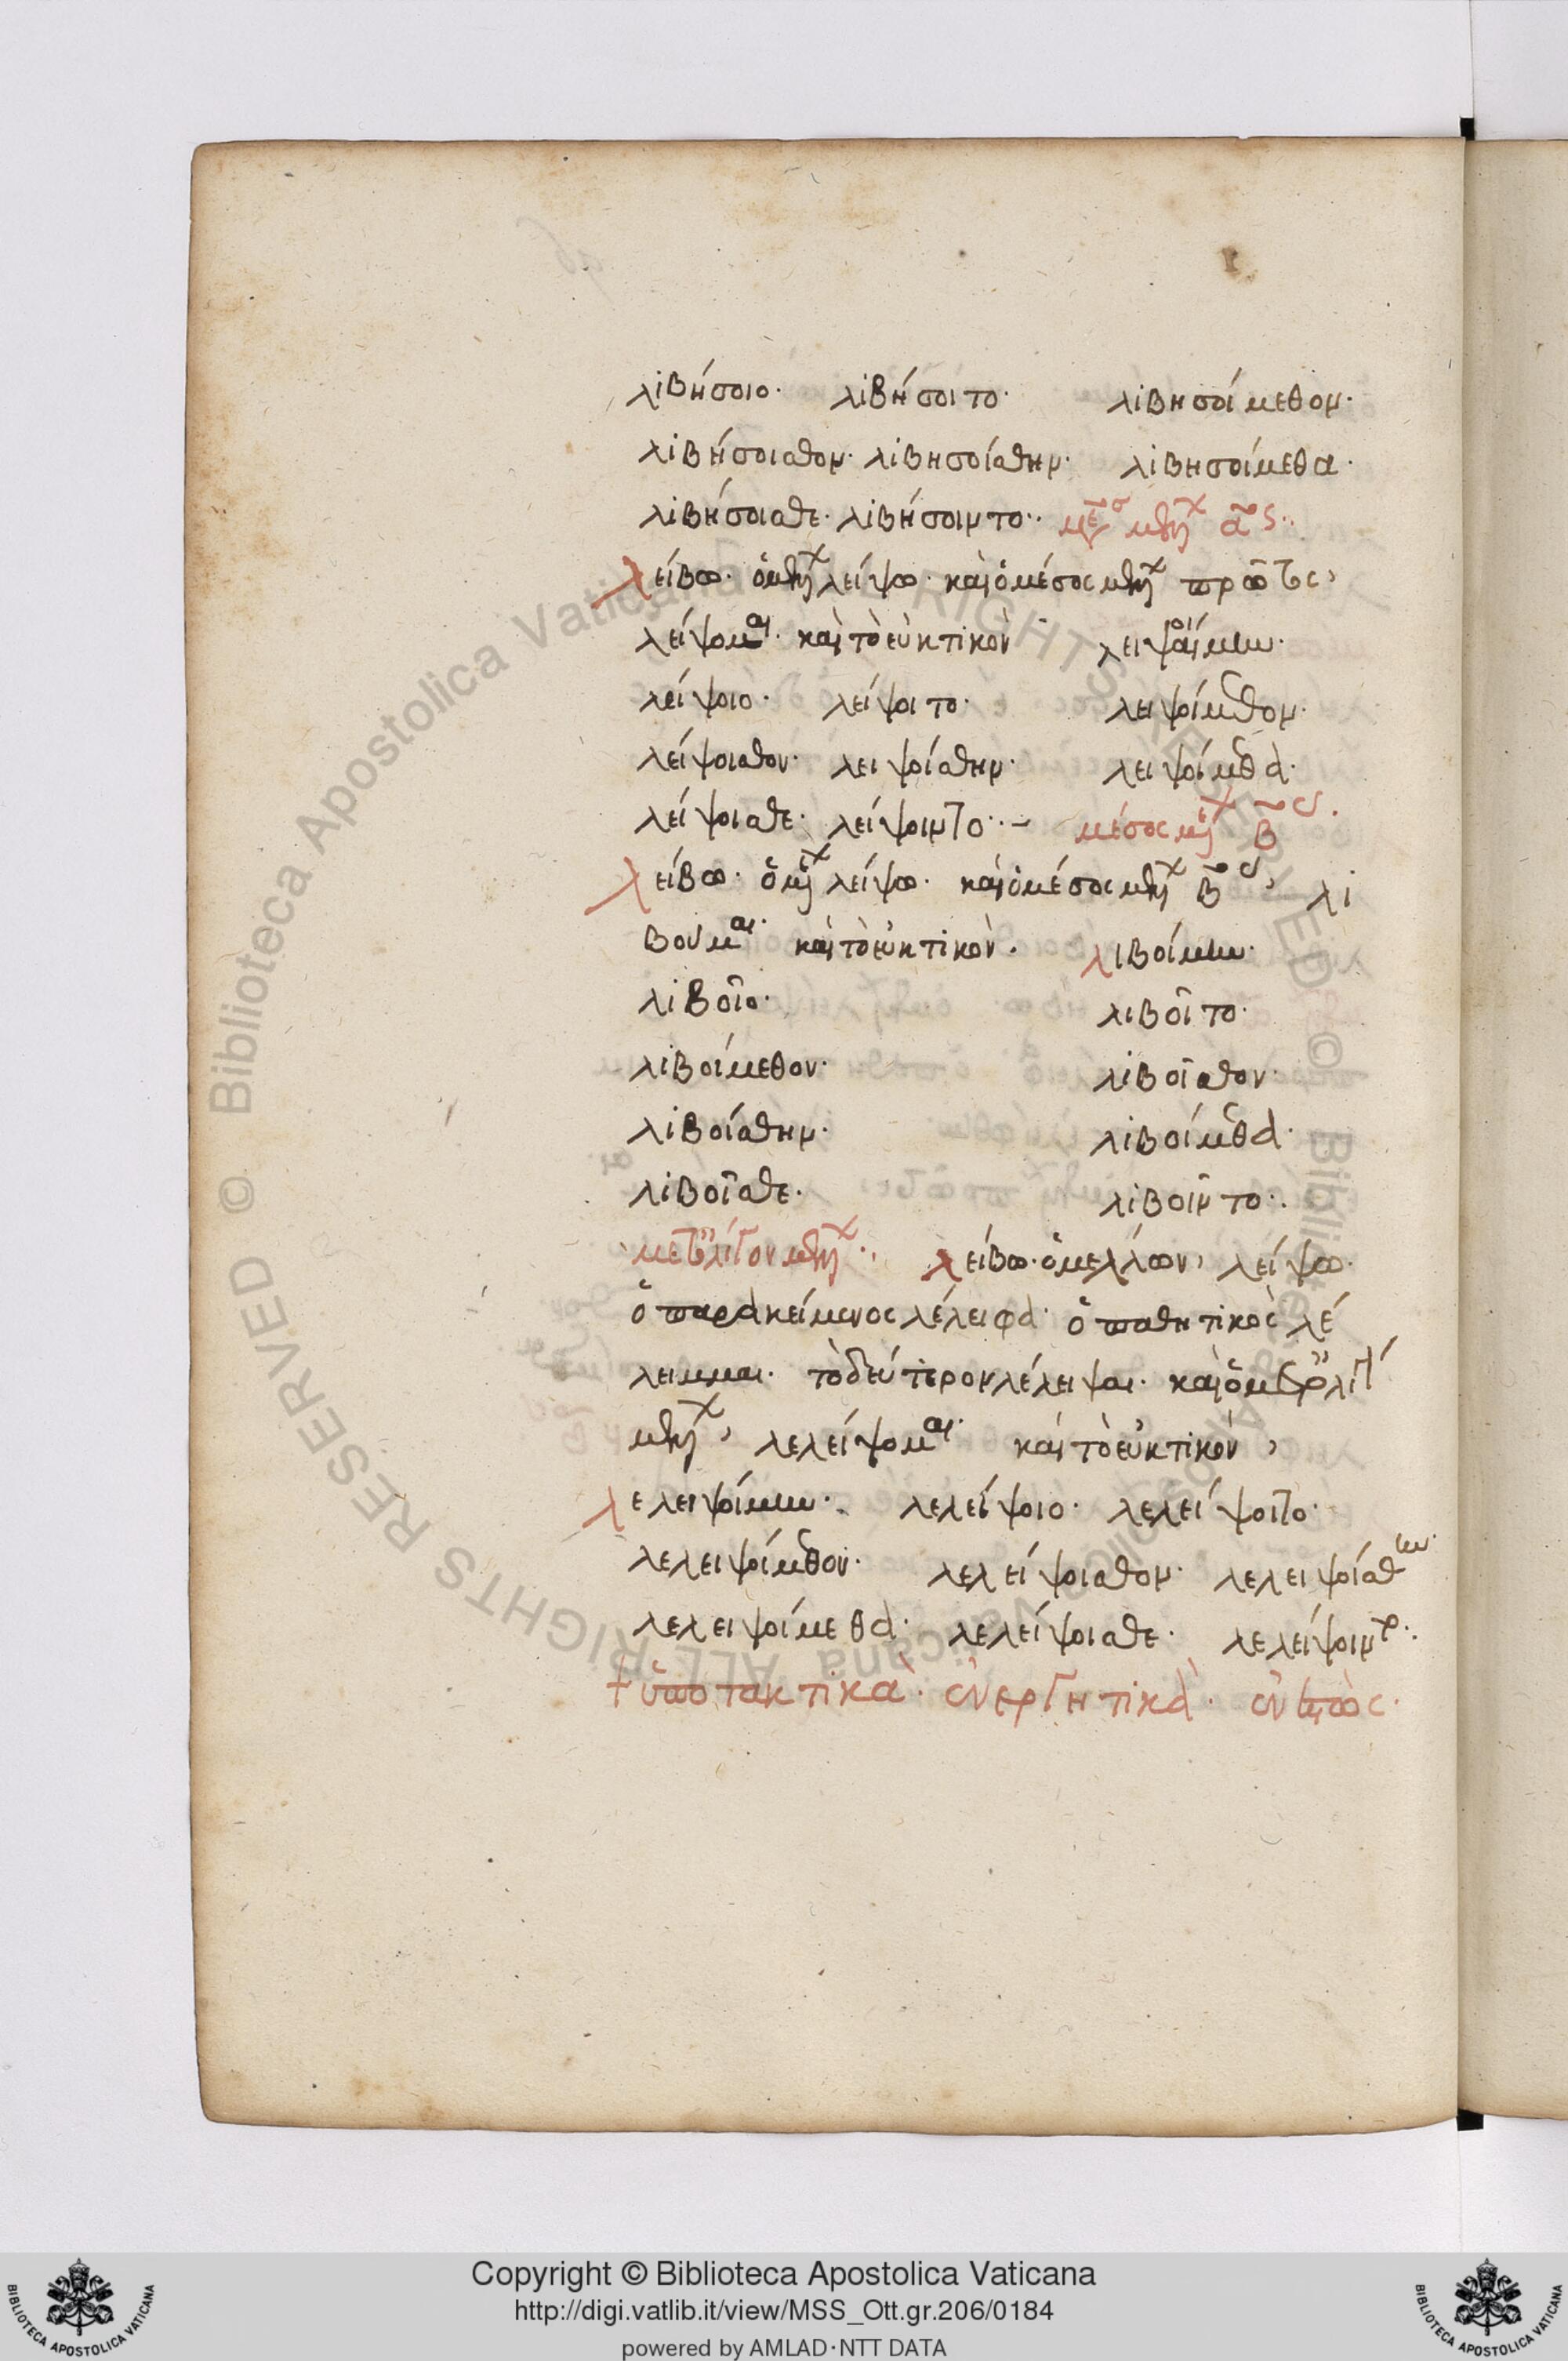 λιβήσοιο· λιβήσοιτο· λιβησοίμεθον·
λιβήσοισθον· λιβησοίσθην· λιβησοίμεθα·
λιβήσοισθε· λιβήσοιντο·· μέσ μλλ α ος··
λείβω· ὁ μλλ λείψω· καὶ ὁ μέσος μλλ πρῶτος,
λείψομαι· καὶ τὸ εὐκτικὸν λειψοίμην·
λείψοιο· λείψοιτο· λειψοίμεθον·
λείψοισθον· λειψοίσθην· λειψοίμεθα·
λείψοισθε· λείψοιντο··– μέσος μλλ β ος·
λείβω· ὁ μλλ λείψω· καὶ ὁ μέσος μλλ β ος, λι
βοῦμαι· καὶ τὸ εὐκτικὸν· λιβοίμην·
λιβοῖο· λιβοῖτο·
λιβοίμεθον· λιβοῖσθον·
λιβοίσθην· λιβοίμεθα·
λιβοῖσθε· λιβοῖντο··
μετ' ὀλίγον μλλ·· λείβω· ὁ μέλλων, λείψω·
ὁ παρακείμενος λέλειφα· ὁ παθητικὸς λέ
λειμμαι· τὸ δεύτερον λέλειψαι· καὶ ὁ μετ' ὀλίγ
μλλ, λελείψομαι· καὶ τὸ εὐκτικὸν,
λελειψοίμην· λελείψοιο· λελείψοιτο·
λελειψοίμεθον· λελείψοισθον· λελειψοίσθην·
λελειψοίμεθα· λελείψοισθε· λελείψοιντο··
† ὑποτακτικὰ· ἐνεργητικὰ· ἐνεστὼς·
Copyright © Biblioteca Apostolica Vaticana
http://digi.vatlib.it/view/MSS_Ott.gr.206/0184
powered by AMLAD·NTT DATA